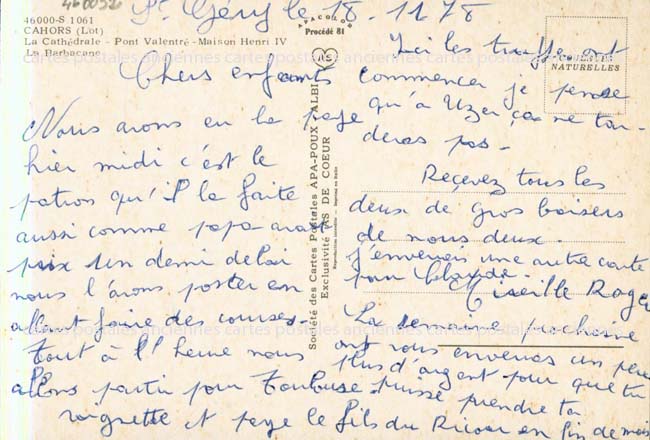 460032
46000-S 1061
CAHORS (Lot)
La Cathédrale - Pont Valentré - Maison Henri IV
La Barbacane
APACOLOR
Procédé 81
COULEURS
NATURELLES
Société des Cartes Postales APA-POUX - ALBI
Exclusivité AS DE COEUR
St Géry le 18.11.78
Chers enfants
Nous avons eu la paye
hier midi c'est le
patron qu'il la faite
aussi comme papa avait
prix un demi delai
nous l'avons poster en
allant faire des courses.
Tout à l'heure nous
allons partir pour Toulouse.
Ici les truffe ont
commencer je pense
qu'à Uzer ça ne tar-
deras pas.
Recevez tous les
deux de gros baisers
de nous deux.
j'envenrais une autre carte
pour Claude.
Roger
La semaine prochaine
ont vous envenras un peu
plus d'argent pour que tu
puisse prendre ta
vignette et paye le fils du en fin de mois
cartes postales anciennes cartes postales anciennes cartes postales anciennes